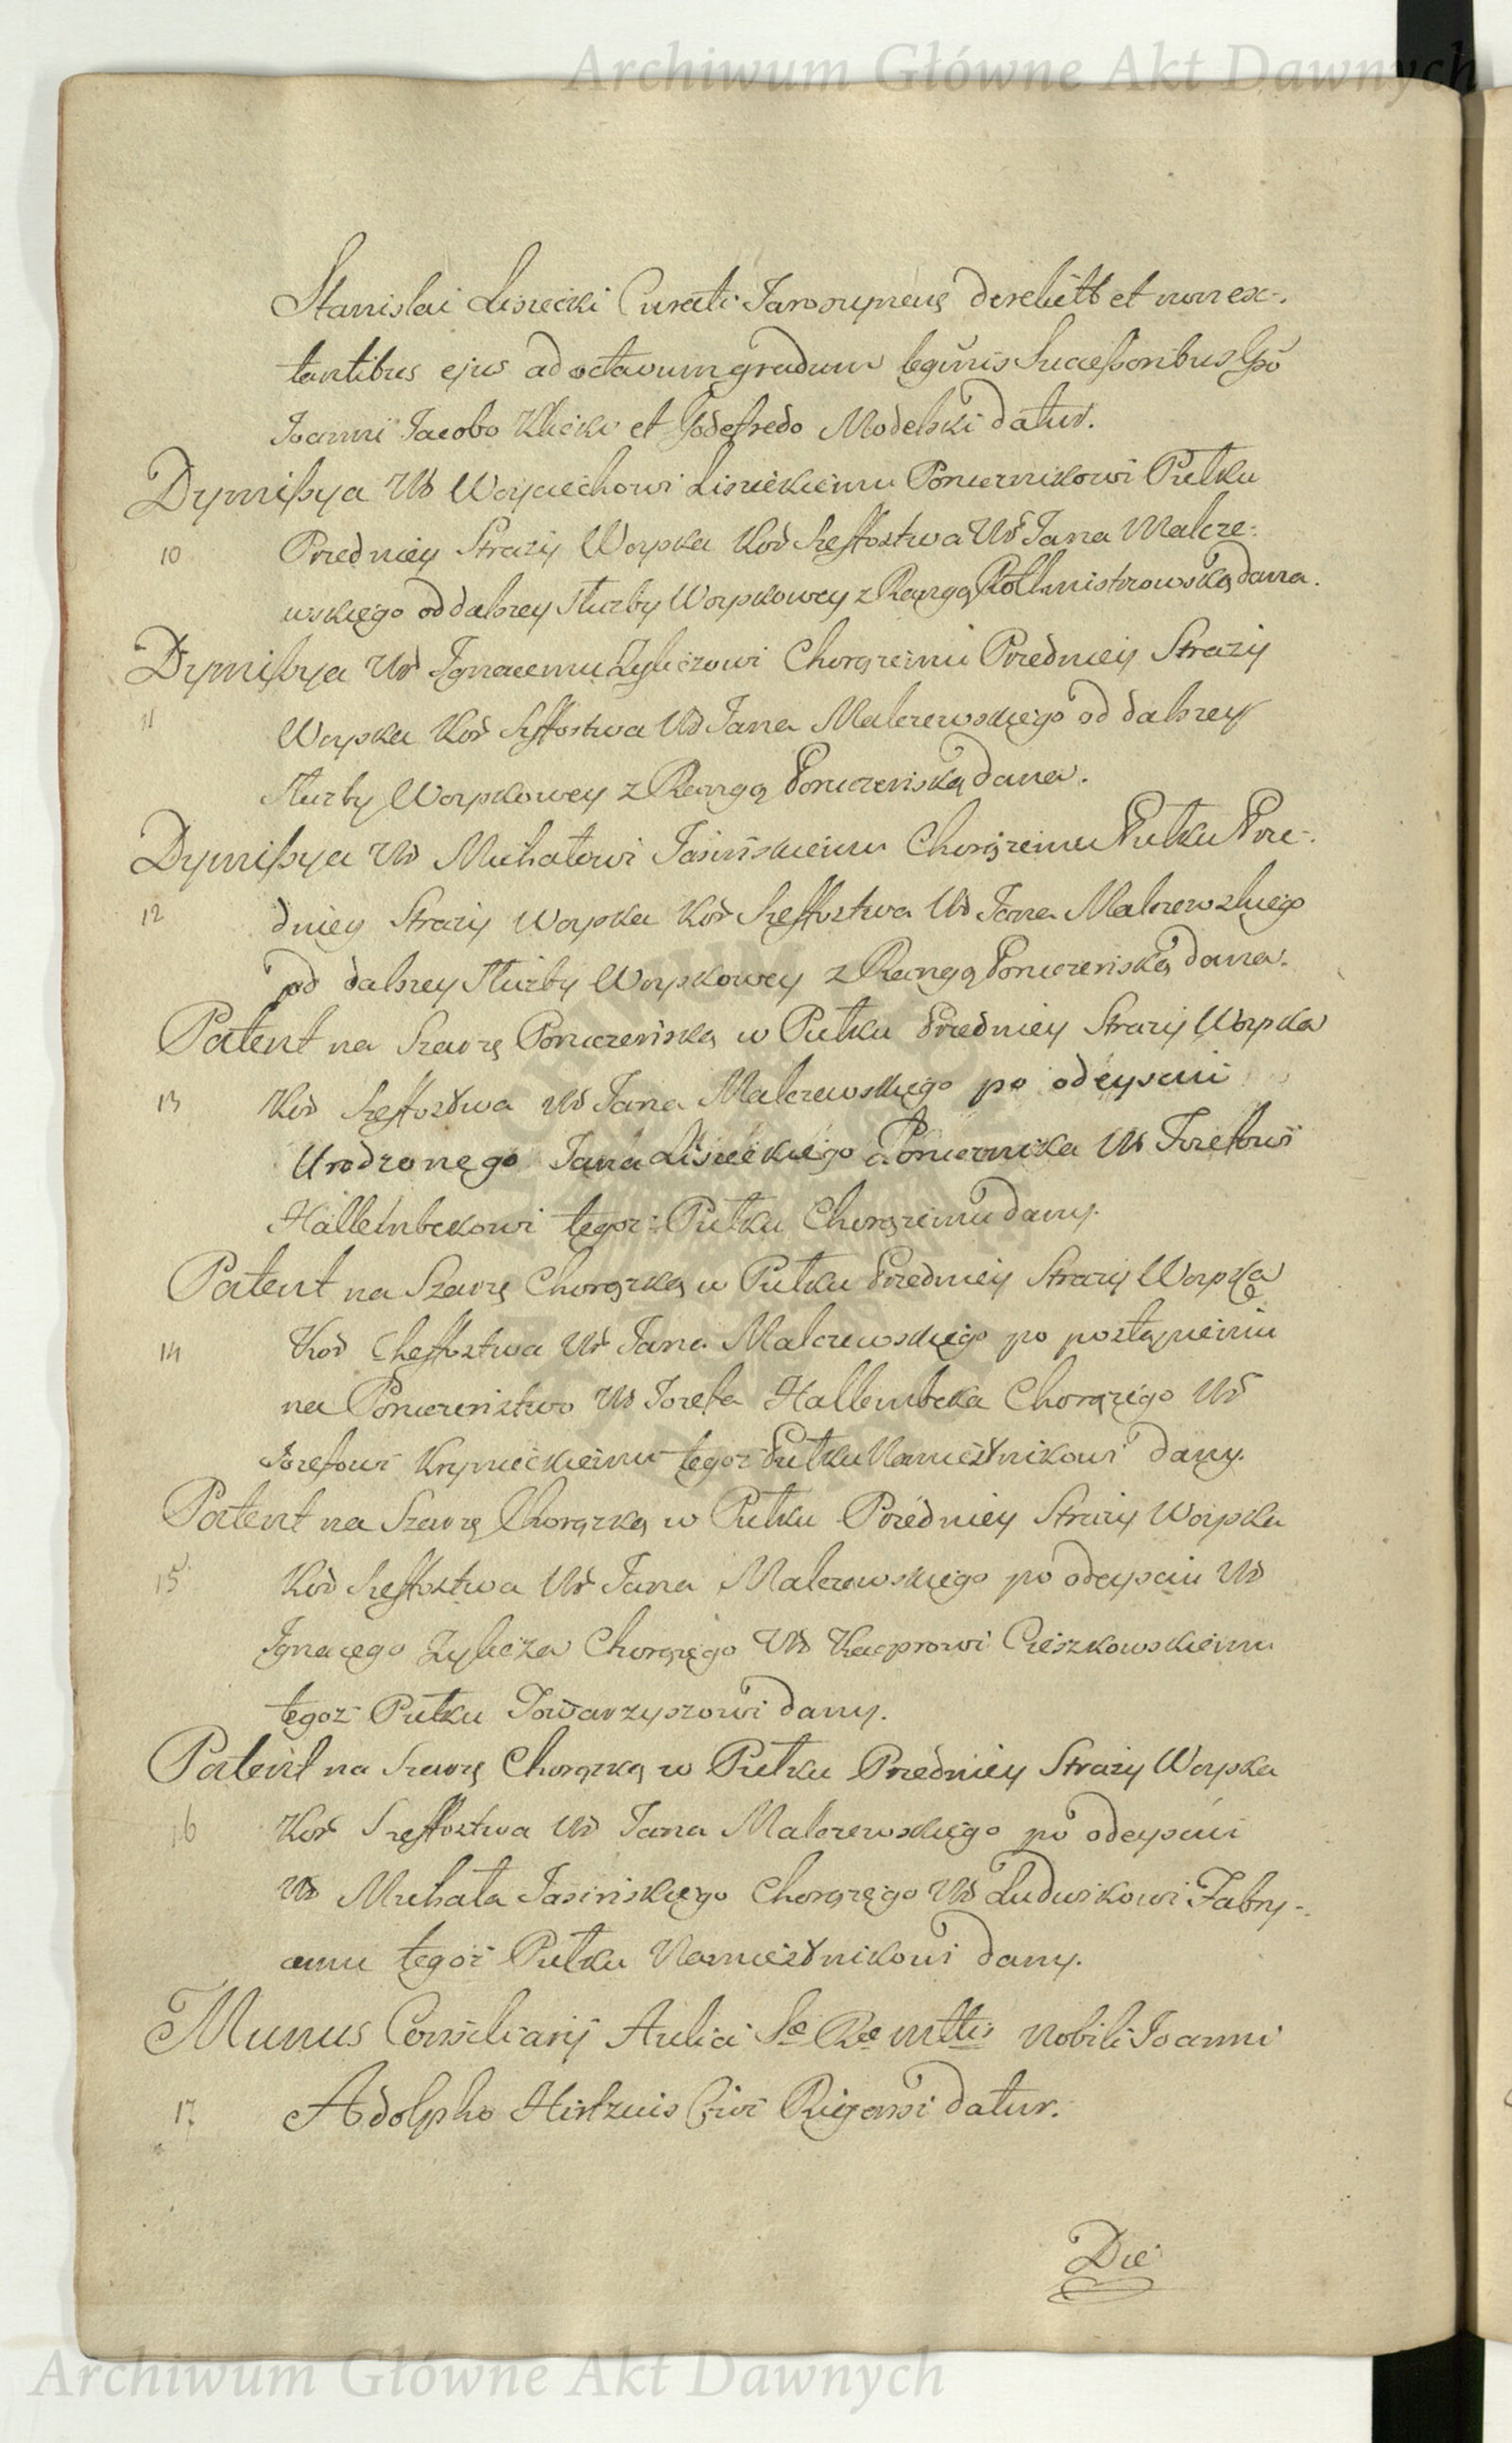 Archiwum Główne Akt Dawnych
Stanislai Lisiecki Curati derelictt et non ex-
tantibus ejus ad octavum gradum legttimis Successoribus
Joanni Jacobo Klicki et Godefredo Modelski datur.
Dymissya Ur Woyciechowi Lisieckiemu Porucznikowi Pułku
10 Przedniey Straży Woyska Kor Szeffostwa Ur Jana Malcze-
wskiego od dalszey Służby Woyskowey z Rangą Rottmistrzowską dana.
Dymissya Ur Ignacemu Zybiczowi Chorążemu Przedniey Straży
11 Woyska Kor Szeffostwa Ur Jana Malczewskiego od dalszey
Służby Woyskowey z Rangą Poruczeńską dana.
Dymissya Ur Michałowi Jasińskiemu Chorążemu Pułku Prze-
12 dniey Straży Woyska Kor Szeffostwa Ur Jana Malczewskiego
od dalszey Służby Woyskowey z Rangą Poruczeńską dana.
Patent na Szarżę Poruczeńską w Pułku Przedniey Straży Woyska
13 Kor Szeffostwa Ur Jana Malczewskiego po odeyściu
Urodzonego Jana Lisieckiego Porucznika Ur Jozefowi
Hallembekowi tegoż Pułku Chorążemu dany.
Patent na Szarżę Chorązką w Pułku Przedniey Straży Woyska
14 Kor Cheffostwa Ur Jana Malczewskiego po postąpieniu
na Poruczeństwo Ur Jozefa Hallembeka Chorążego Ur
Jozefowi Krynieckiemu tegoż Pułku Namiestnikowi dany.
Patent na Szarżę Chorązką w Pułku Przedniey Straży Woyska
15 Kor Szeffostwa Ur Jana Malczewskiego po odeyściu Ur
Ignacego Zybicza Chorążego Ur Kacprowi Cieszkowskiemu
tegoż Pułku Towarzyszowi dany.
Patent na Szarżę Chorązką w Pułku Przedniey Straży Woyska
16 Kor Szeffostwa Ur Jana Malczewskiego po odeyściu
Ur Michała Jasińskiego Chorążego Ur Ludwikowi Fabry-
cemu tegoż Pułku Namiestnikowi dany.
Munus Consiliarij Aulici Sæ Ræ Mttis Nobili Joanni
17 Adolpho Civi Rigensi datur.
Die
Archiwum Główne Akt Dawnych